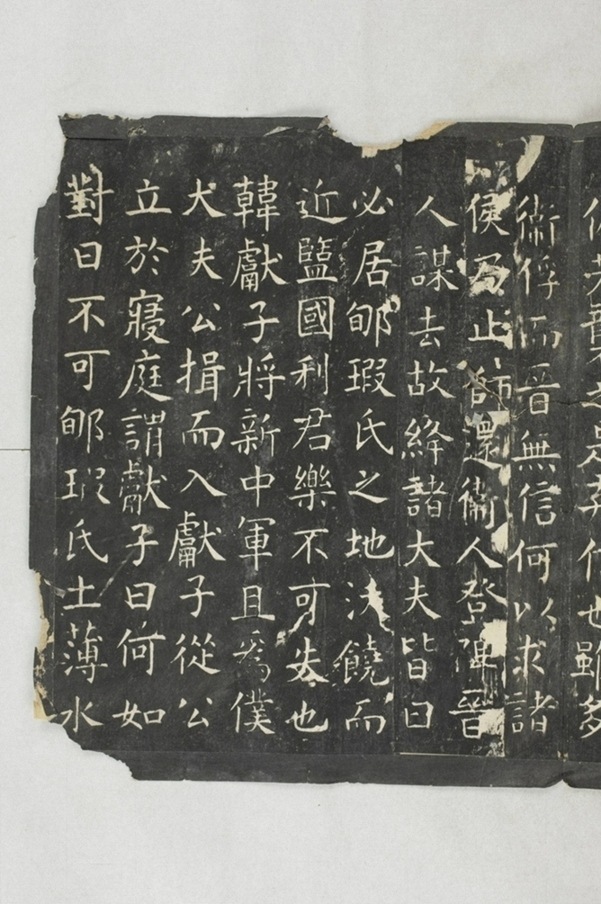 備若襲之是棄信也雖多
衛俘而晉無信何以求諸
侯乃止師還衛人登陴晉
人謀去故絳諸大夫皆曰
必居郇瑕氏之地沃饒而
近盬國利君樂不可失也
韓獻子將新中軍且爲僕
大夫公揖而入獻子從公
立於寢庭謂獻子曰何如
對曰不可郇瑕氏土薄水